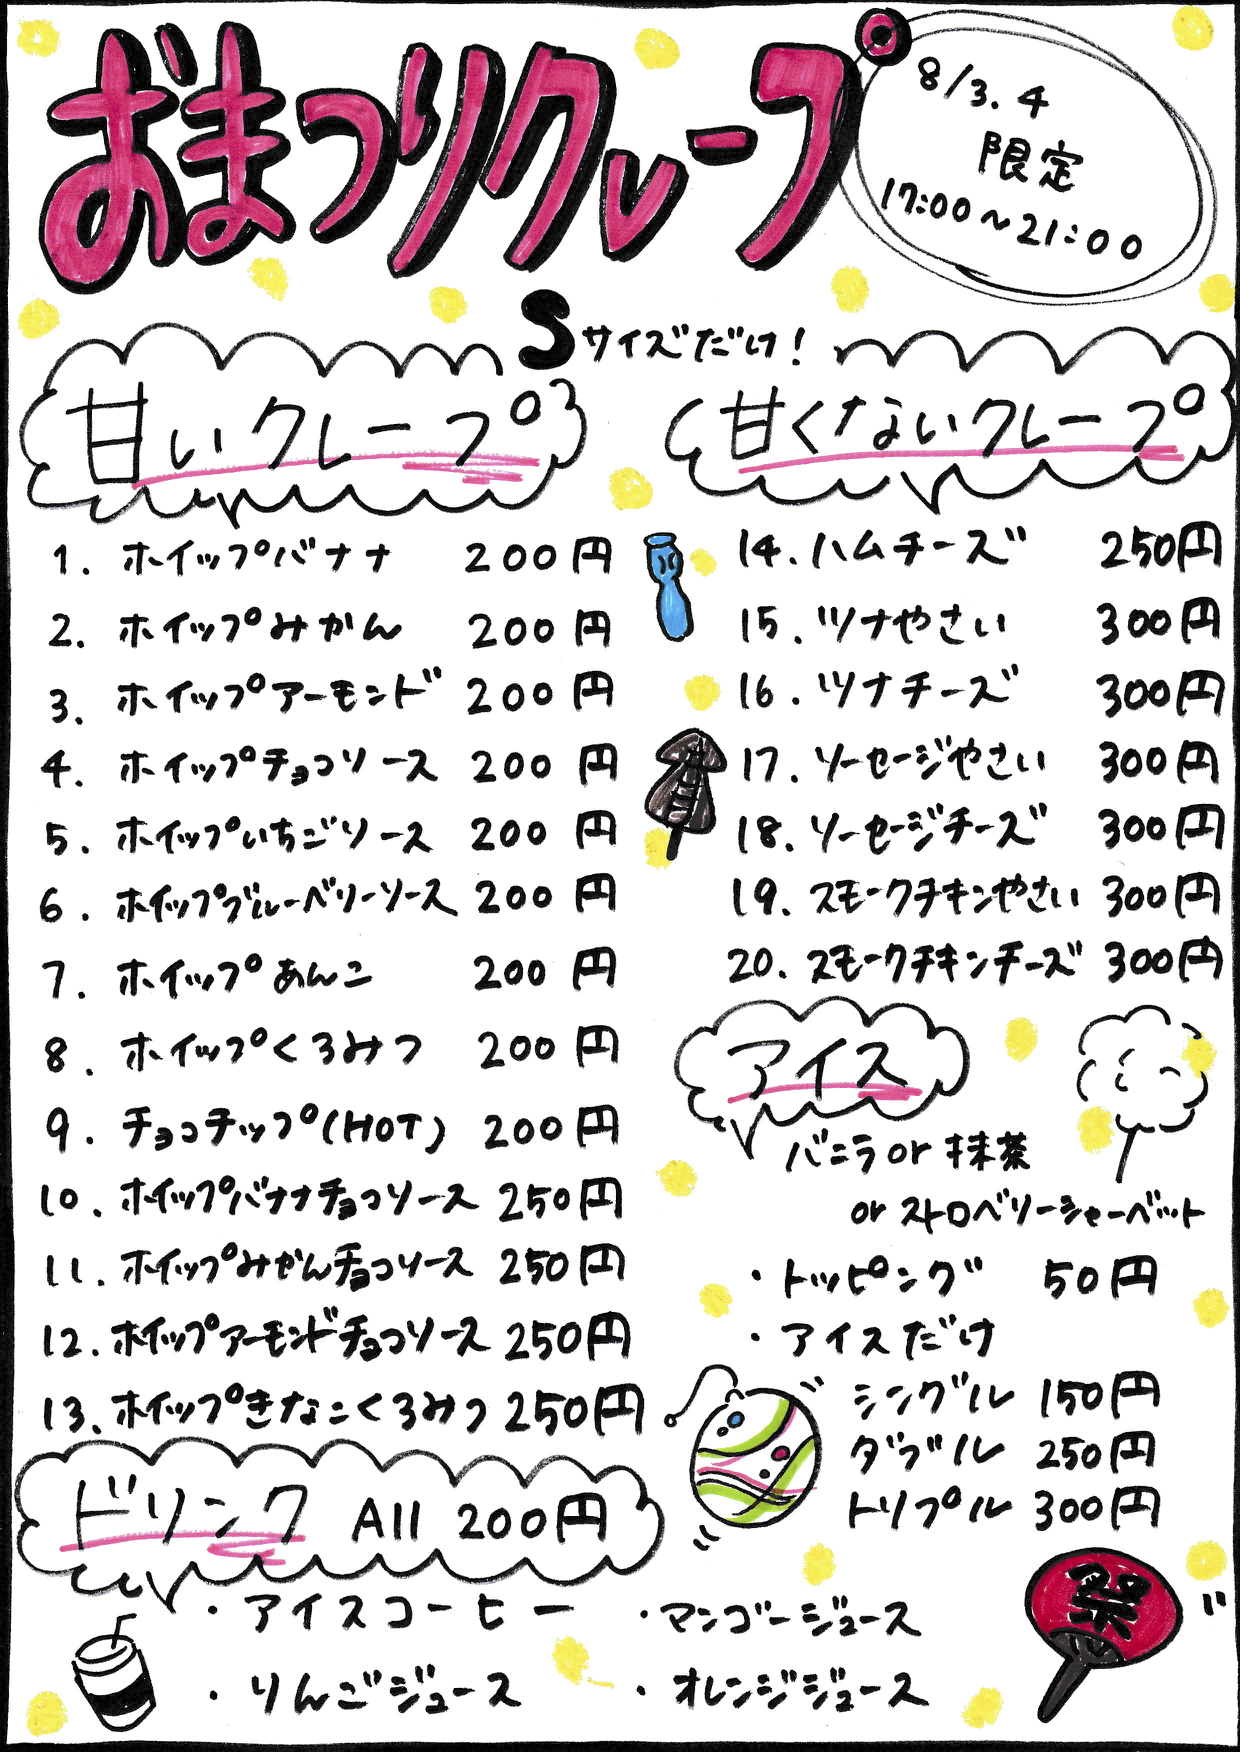 おまつりクレープ
8/3.4
限定
17:00〜21:00
Sサイズだけ!
甘いクレープ
1. ホイップバナナ 200円
2. ホイップみかん 200円
3. ホイップアーモンド 200円
4. ホイップチョコソース 200円
5. ホイップいちごソース 200円
6. ホイップブルーベリーソース 200円
7. ホイップあんこ 200円
8. ホイップくろみつ 200円
9. チョコチップ(HOT) 200円
10. ホイップバナナチョコソース 250円
11. ホイップみかんチョコソース 250円
12. ホイップアーモンドチョコソース 250円
13. ホイップきなこくろみつ 250円
甘くないクレープ
14. ハムチーズ 250円
15. ツナやさい 300円
16. ツナチーズ 300円
17. ソーセージやさい 300円
18. ソーセージチーズ 300円
19. スモークチキンやさい 300円
20. スモークチキンチーズ 300円
アイス
バニラor抹茶
orストロベリーシャーベット
・トッピング 50円
・アイスだけ
シングル 150円
ダブル 250円
トリプル 300円
ドリンク All 200円
・アイスコーヒー ・マンゴージュース
・りんごジュース ・オレンジジュース
祭